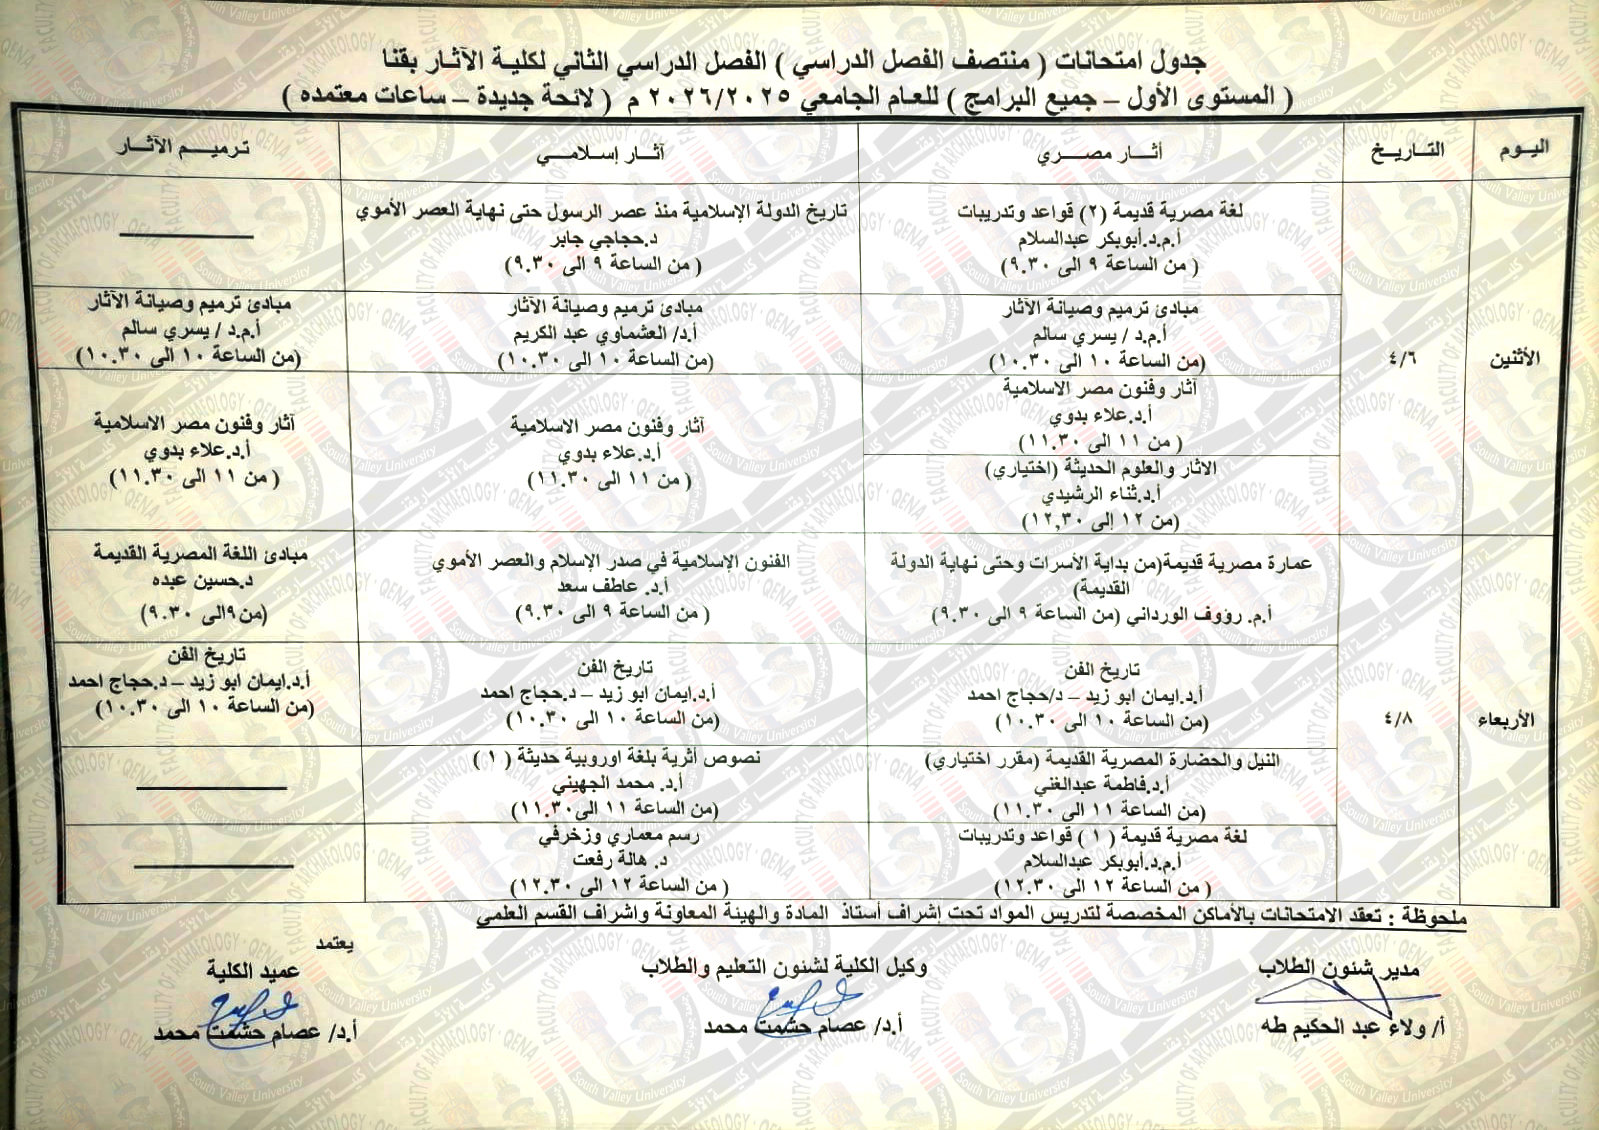 جدول امتحانات ( منتصف الفصل الدراسي ) الفصل الدراسي الثاني لكلية الآثار بقنا
( المستوى الأول – جميع البرامج ) للعام الجامعي ٢٠٢٦/٢٠٢٥ م ( لائحة جديدة – ساعات معتمده )
اليوم
التاريخ
أثار مصري
آثار إسلامي
ترميم الآثار
الأثنين
٤/٦
لغة مصرية قديمة (٢) قواعد وتدريبات
أ.م.د.أبوبكر عبدالسلام
( من الساعة ٩ الى ٩.٣٠)
تاريخ الدولة الإسلامية منذ عصر الرسول حتى نهاية العصر الأموي
د.حجاجي جابر
( من الساعة ٩ الى ٩.٣٠)
مبادئ ترميم وصيانة الآثار
أ.م.د / يسري سالم
(من الساعة ١٠ الى ١٠.٣٠)
مبادئ ترميم وصيانة الآثار
أ.د/ العشماوي عبد الكريم
(من الساعة ١٠ الى ١٠.٣٠)
مبادئ ترميم وصيانة الآثار
أ.م.د / يسري سالم
(من الساعة ١٠ الى ١٠.٣٠)
آثار وفنون مصر الاسلامية
أ.د.علاء بدوي
( من ١١ الى ١١.٣٠)
الاثار والعلوم الحديثة (اختياري)
أ.د.ثناء الرشيدي
(من ١٢ إلى ١٢,٣٠)
آثار وفنون مصر الاسلامية
أ.د.علاء بدوي
( من ١١ الى ١١.٣٠)
آثار وفنون مصر الاسلامية
أ.د.علاء بدوي
( من ١١ الى ١١.٣٠)
الأربعاء
٤/٨
عمارة مصرية قديمة(من بداية الأسرات وحتى نهاية الدولة
القديمة)
أ.م. رؤوف الورداني (من الساعة ٩ الى ٩.٣٠)
الفنون الإسلامية في صدر الإسلام والعصر الأموي
أ.د. عاطف سعد
( من الساعة ٩ الى ٩.٣٠)
مبادئ اللغة المصرية القديمة
د.حسين عبده
(من٩الى ٩.٣٠)
تاريخ الفن
أ.د.ايمان ابو زيد – د/حجاج احمد
(من الساعة ١٠ الى ١٠.٣٠)
تاريخ الفن
أ.د.ايمان ابو زيد – د.حجاج احمد
(من الساعة ١٠ الى ١٠.٣٠)
تاريخ الفن
أ.د.ايمان ابو زيد – د.حجاج احمد
(من الساعة ١٠ الى ١٠.٣٠)
النيل والحضارة المصرية القديمة (مقرر اختياري)
أ.د.فاطمة عبدالغني
(من الساعة ١١ الى ١١.٣٠)
نصوص أثرية بلغة اوروبية حديثة ( ١ )
أ.د. محمد الجهيني
(من الساعة ١١ الى١١.٣٠)
لغة مصرية قديمة ( ١ ) قواعد وتدريبات
أ.م.د.أبوبكر عبدالسلام
( من الساعة ١٢ الى ١٢.٣٠)
رسم معماري وزخرفي
د. هالة رفعت
( من الساعة ١٢ الى ١٢.٣٠)
ملحوظة : تعقد الامتحانات بالأماكن المخصصة لتدريس المواد تحت إشراف أستاذ المادة والهيئة المعاونة واشراف القسم العلمي
يعتمد
مدير شئون الطلاب
وكيل الكلية لشئون التعليم والطلاب
عميد الكلية
أ/ ولاء عبد الحكيم طه
أ.د/ عصام حشمت محمد
أ.د/ عصام حشمت محمد
South Valley University
FACULTY OF ARCHAEOLOGY · QENA